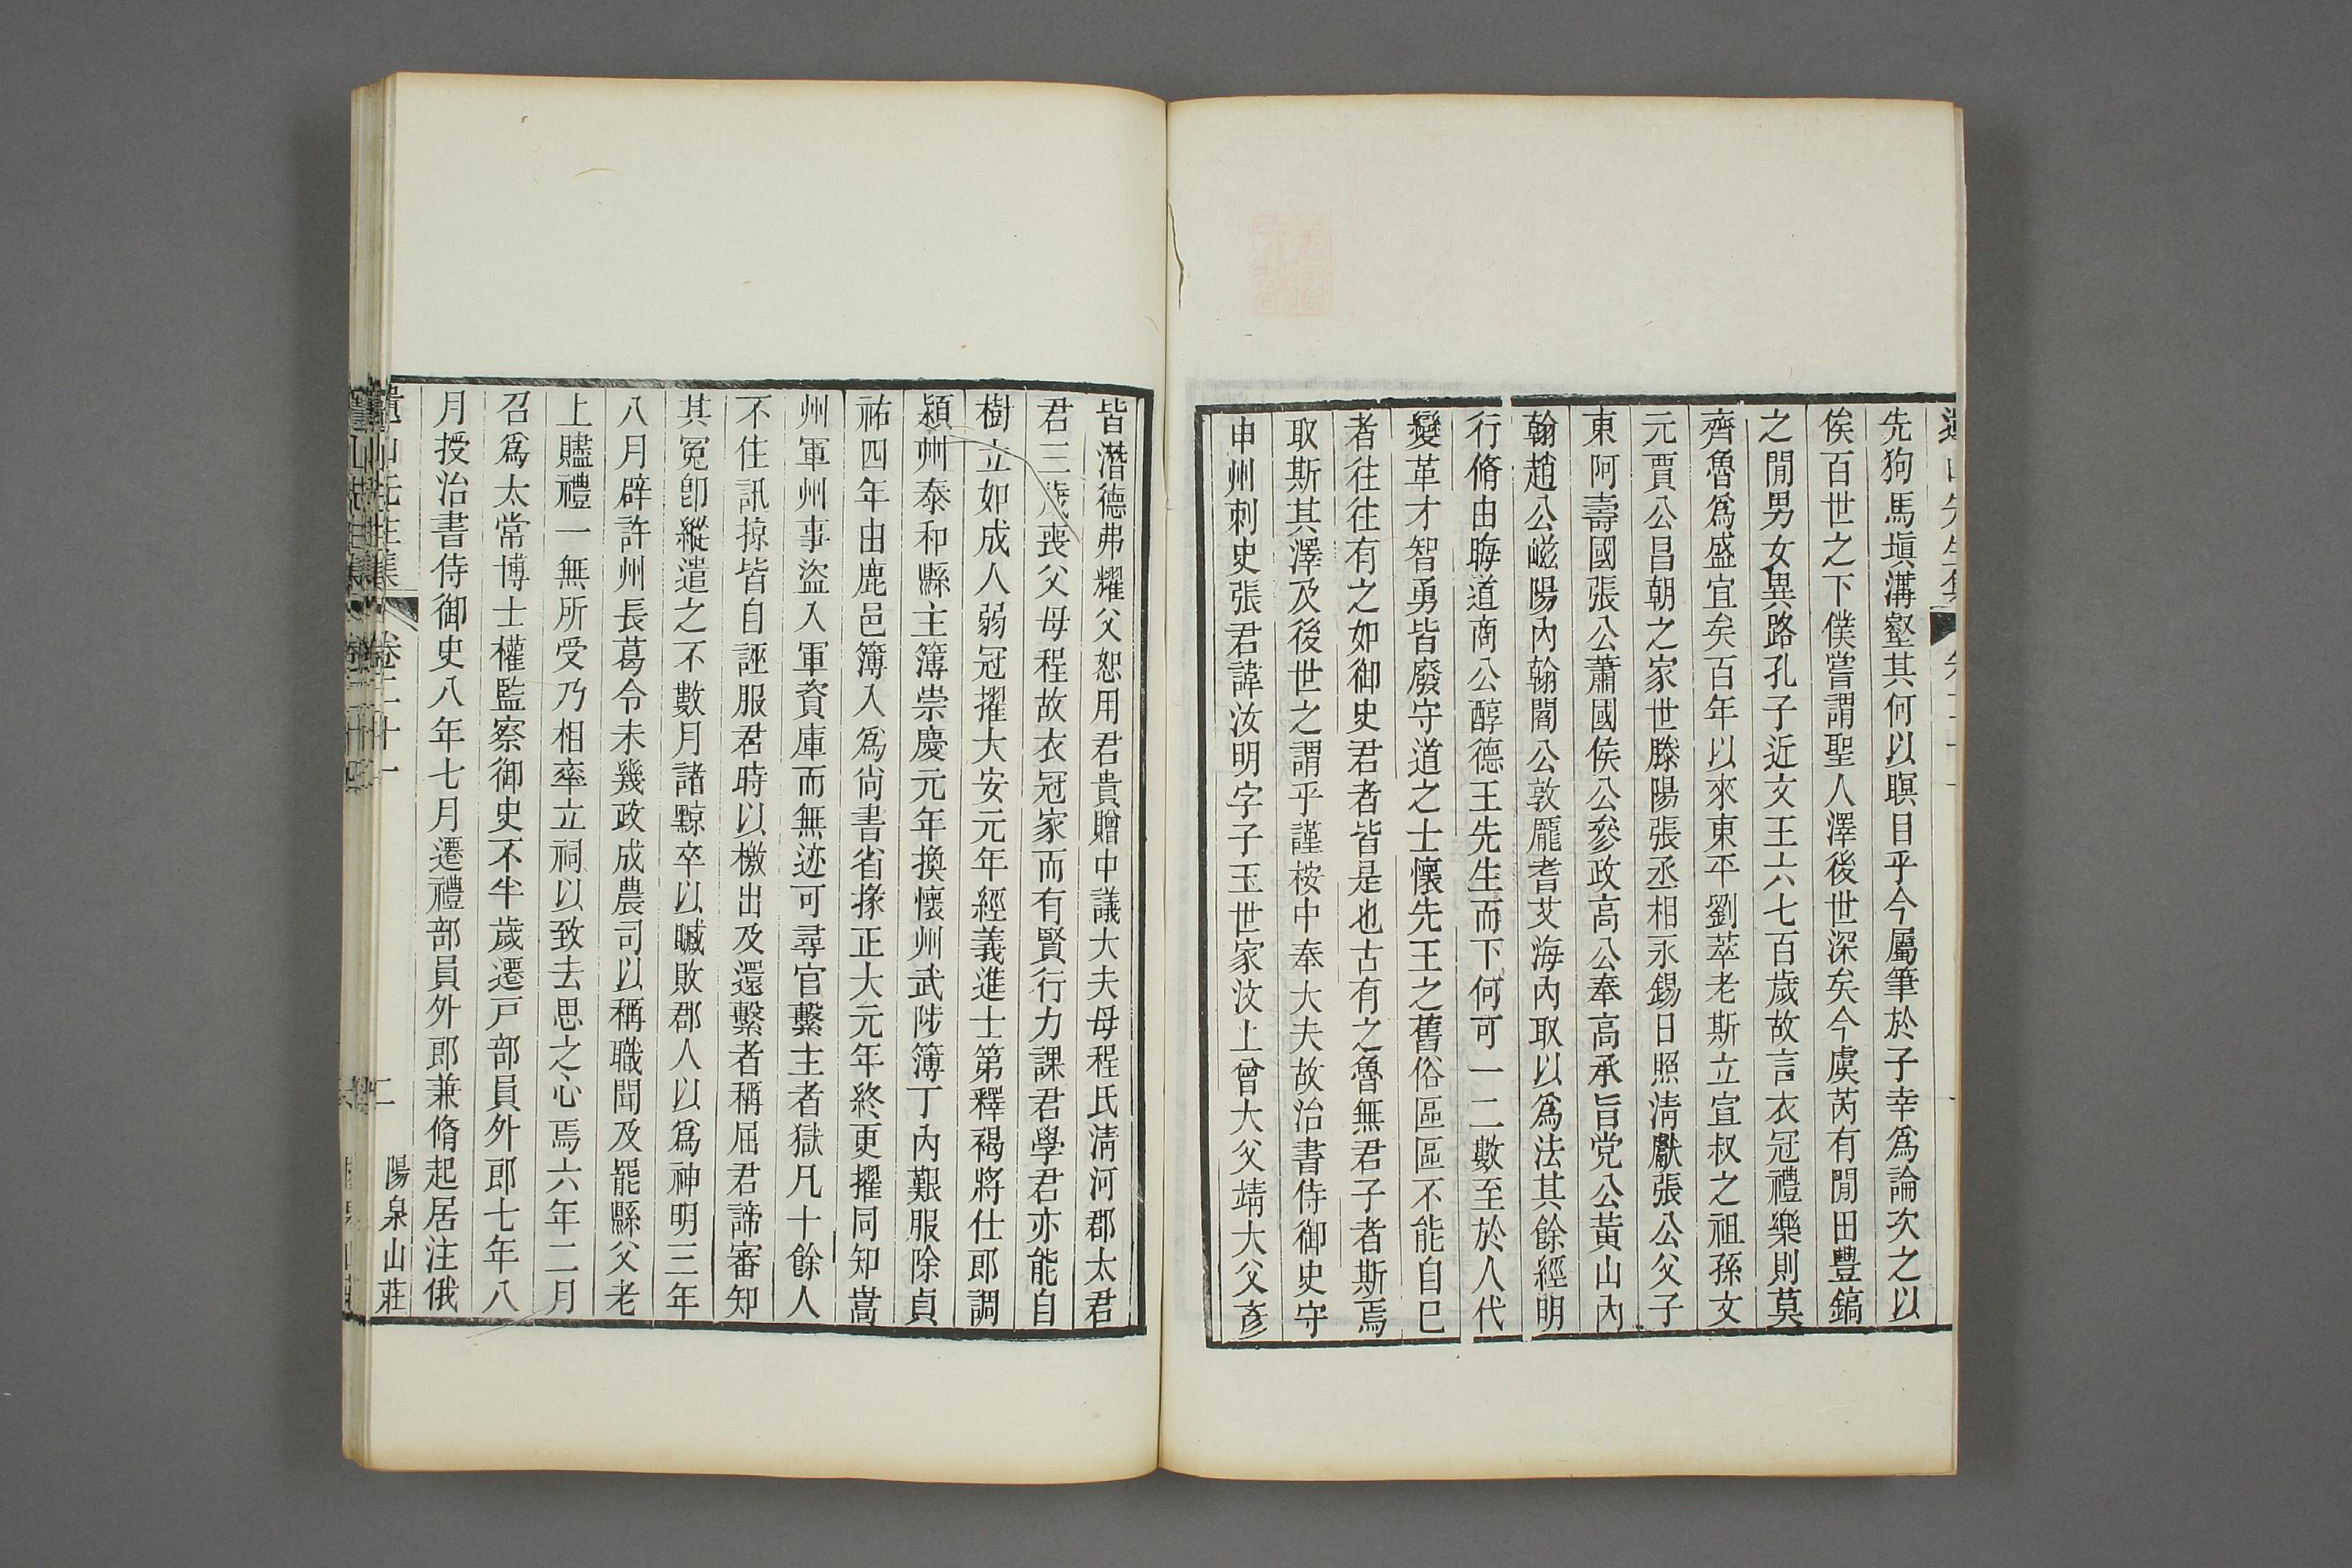 先狗馬塡溝壑其何以瞑目乎今屬筆於子幸爲論次之以
俟百世之下僕嘗謂聖人澤後世深矣今虞芮有閒田豐鎬
之閒男女異路孔子近文王六七百歲故言衣冠禮樂則莫
齊魯爲盛宜矣百年以來東平劉莘老斯立宣叔之祖孫文
元賈公昌朝之家世滕陽張丞相永錫日照淸獻張公父子
東阿壽國張公蕭國侯公參政高公奉高承旨党公黃山內
翰趙公嵫陽內翰閻公敦龎耆艾海內取以爲法其餘經明
行脩由晦道商公醇德王先生而下何可一二數至於人代
變革才智勇皆廢守道之士懷先王之舊俗區區不能自已
者往往有之如御史君者皆是也古有之魯無君子者斯焉
取斯其澤及後世之謂乎謹桉中奉大夫故治書侍御史守
申州刺史張君諱汝明字子玉世家汶上曾大父靖大父彥
皆潛德弗耀父恕用君貴贈中議大夫母程氏淸河郡太君
君三歲喪父母程故衣冠家而有賢行力課君學君亦能自
樹立如成人弱冠擢大安元年經義進士第釋褐將仕郎調
潁州泰和縣主簿崇慶元年換懷州武陟簿丁內艱服除貞
祐四年由鹿邑簿入爲尙書省掾正大元年終更擢同知嵩
州軍州事盜入軍資庫而無迹可尋官繫主者獄凡十餘人
不住訊掠皆自誣服君時以檄出及還繫者稱屈君諦審知
其冤卽縱遣之不數月諸黥卒以贓敗郡人以爲神明三年
八月辟許州長葛令未幾政成農司以稱職聞及罷縣父老
上贐禮一無所受乃相率立祠以致去思之心焉六年二月
召爲太常博士權監察御史不半歲遷戸部員外郎七年八
月授治書侍御史八年七月遷禮部員外郎兼脩起居注俄
遺山先生集 卷二十一 二 陽泉山莊